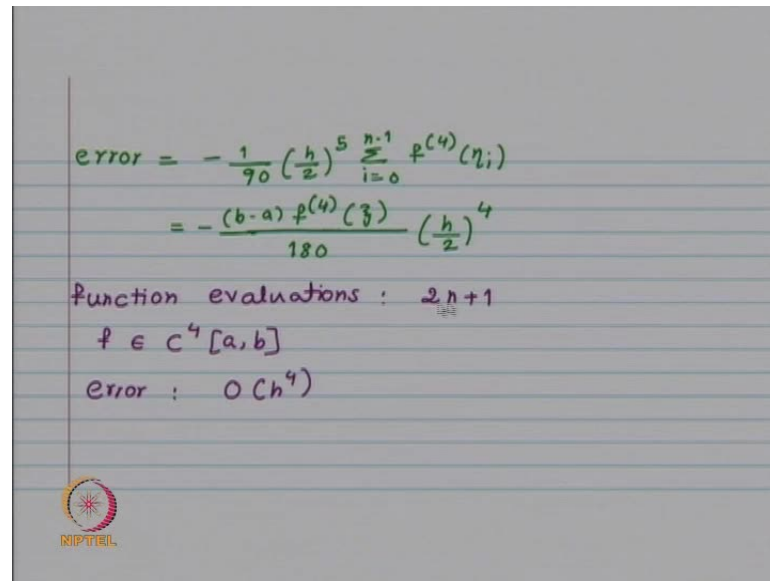 error = - 1/90 (h/2)^5 Σ_{i=0}^{n-1} f^(4)(η_i)
= - (b-a) f^(4)(ξ) / 180 (h/2)^4
function evaluations : 2n+1
f ∈ C^4 [a, b]
error : O(h^4)
NPTEL